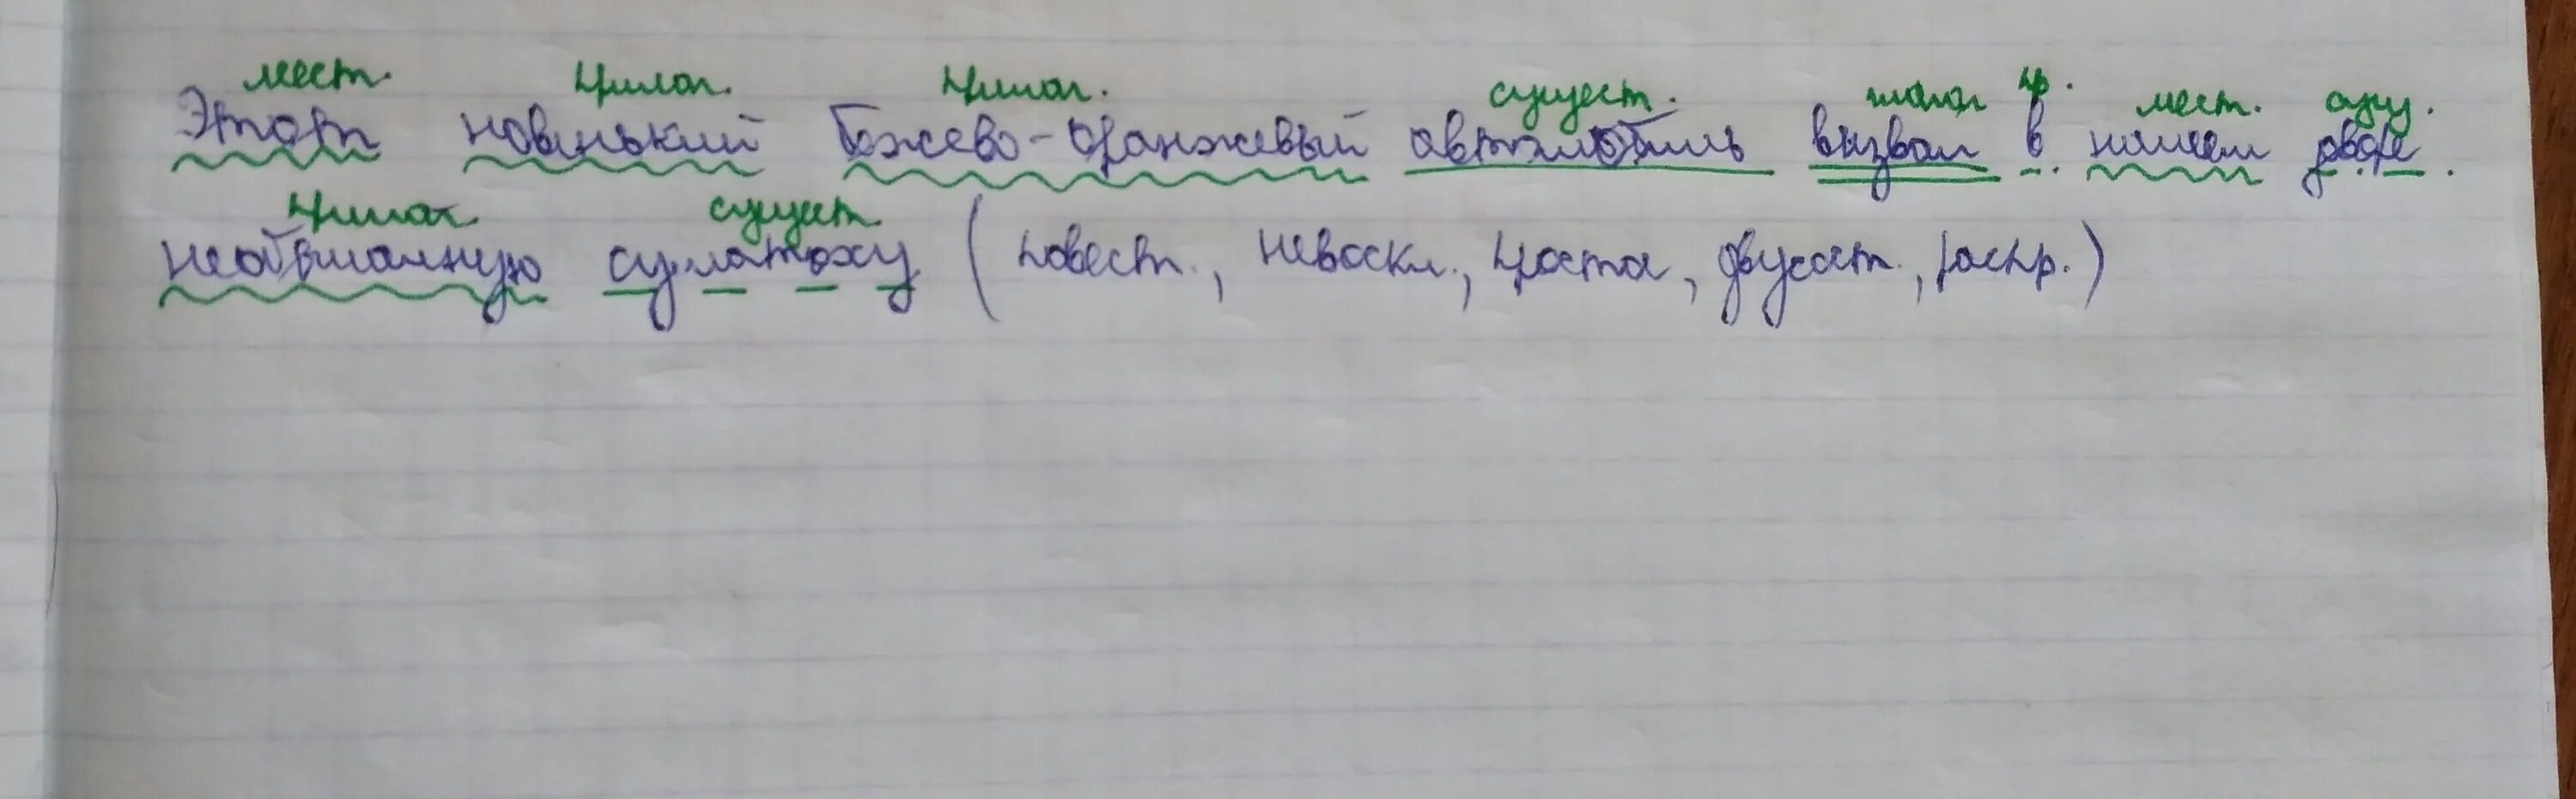 мест. прилаг. прилаг. сущест. глагол пр. мест. сущ.
Этот новинький бежево-оранжевый автомобиль вызвал в нашем дворе
прилаг. сущест.
небывалную суматоху (повест., невоскл., проста, двусост., распр.)